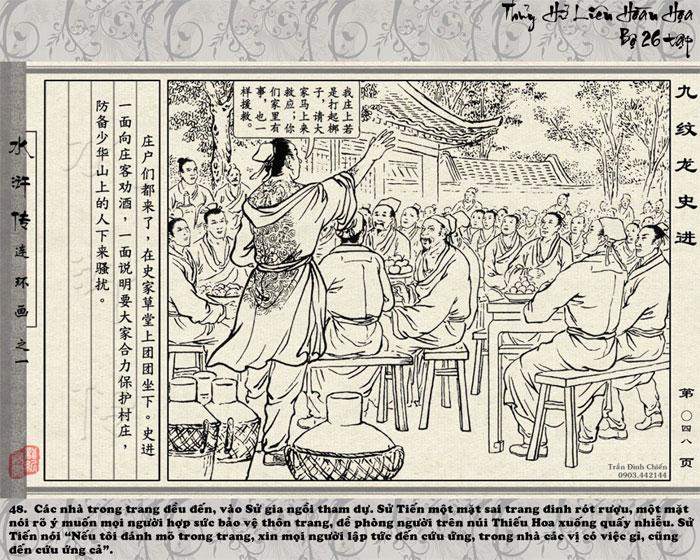 Thủy Hử Liên Hoàn Họa
Bộ 26 tập
九纹龙史进
第〇四八页
我庄上若
是打起梆
子，请大
家马上来
救应；你
们家里有
事，也一
样援救。
庄户们都来了，在史家草堂上团团坐下。史进
一面向庄客劝酒，一面说明要大家合力保护村庄，
防备少华山上的人下来骚扰。
水浒传连环画之一
Trần Đình Chiến
0903.442144
48. Các nhà trong trang đều đến, vào Sử gia ngồi tham dự. Sử Tiến một mặt sai trang đinh rót rượu, một mặt
nói rõ ý muốn mọi người hợp sức bảo vệ thôn trang, đề phòng người trên núi Thiếu Hoa xuống quấy nhiễu. Sử
Tiến nói “Nếu tôi đánh mõ trong trang, xin mọi người lập tức đến cứu ứng, trong nhà các vị có việc gì, cũng
đến cứu ứng cả”.